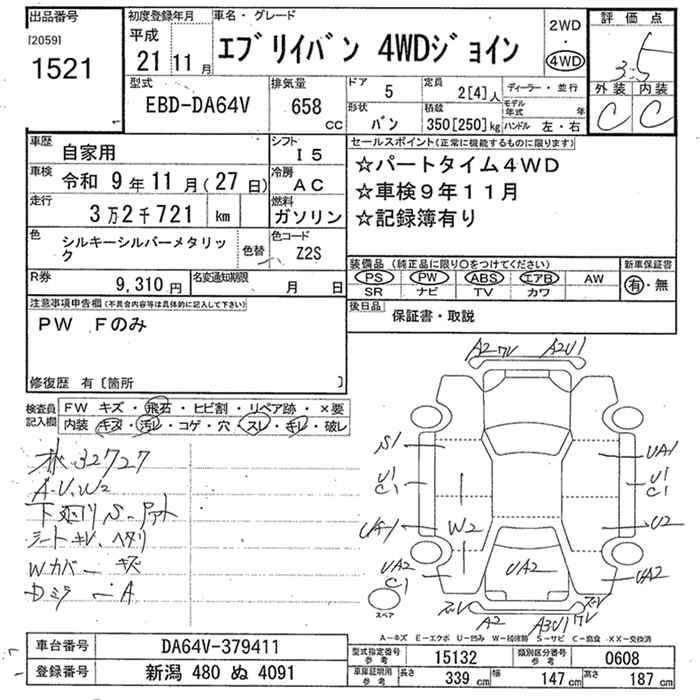 出品番号
[2059]
1521
初度登録年月
平成
21 11 月
車名・グレード
エブリイバン 4WDジョイン
2WD
・
4WD
評価点
3.5
外装 内装
C C
型式
EBD-DA64V
排気量
658
CC
ドア
5
定員
2[4]人
形状
バン
積載
350[250]kg
ディーラー・並行
モデル年式 年
ハンドル 左・右
車歴
自家用
シフト
I5
車検
令和 9年 11月(27日)
冷房
AC
走行
3万2千721 km
燃料
ガソリン
色
シルキーシルバーメタリック
色替
色コード
Z2S
R券
9,310 円
名変通知期限
月 日
セールスポイント(正常に機能するものに限ります)
☆パートタイム4WD
☆車検9年11月
☆記録簿有り
装備品 (純正品に限り○をつけてください)
PS PW ABS エアB AW
SR ナビ TV カワ
新車保証書
有・無
後日品
保証書・取説
注意事項申告欄(不具合内容等は具体的に記入して下さい)
PW Fのみ
修復歴 有〔箇所 〕
検査員記入欄
FW キズ・飛石・ヒビ割・リペア跡・×要
内装 キズ・汚レ・コゲ・穴・スレ・キレ・破レ
32727
A.U.W2
シートキレ、ヘタリ
Wカバー キズ
A
A2 A2U1
S1 UA1
U1
C1
U1
C1
W2 U2
UA2
C1
UA2 UA2
A2 A3U1
スペア
A-キズ E-エクボ U-凹み W-補修跡 S-サビ C-腐食 XX-交換済
車台番号
DA64V-379411
登録番号
新潟 480 ぬ 4091
型式指定番号
参考
15132
類別区分番号
参考
0608
車庫証明用
参考
長さ
339 cm
幅
147 cm
高さ
187 cm